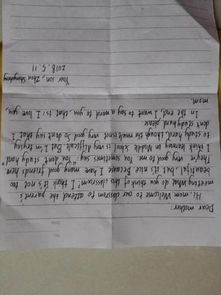 Dear mother
Hi, mom. Welcome to our classroom to attend the parent's
meeting. What do you think of this classroom? I think it's not too
beautiful, but it's nice. Because I have many good friends here.
They're very good to me. You sometimes say, "You don't study hard."
I think learning in Middle School is very difficult. But I'm trying
to study hard, though the result isn't very good. So don't say that I
don't study hard, please.
In the end, I want to say a word to you, that is: I love you,
mom.
Your son, Zhou
2018. 5. 11